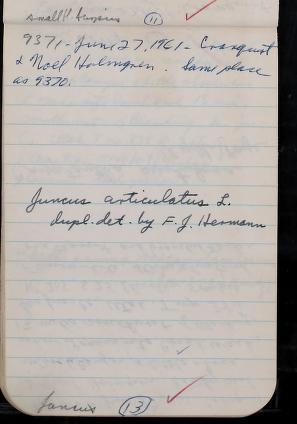 small
11
9371 - June 27, 1961 - Cronquist
& Noel Holmgren. Same place
as 9370.
Juncus articulatus L.
dupl. det. by F. J. Hermann
Juncus 13